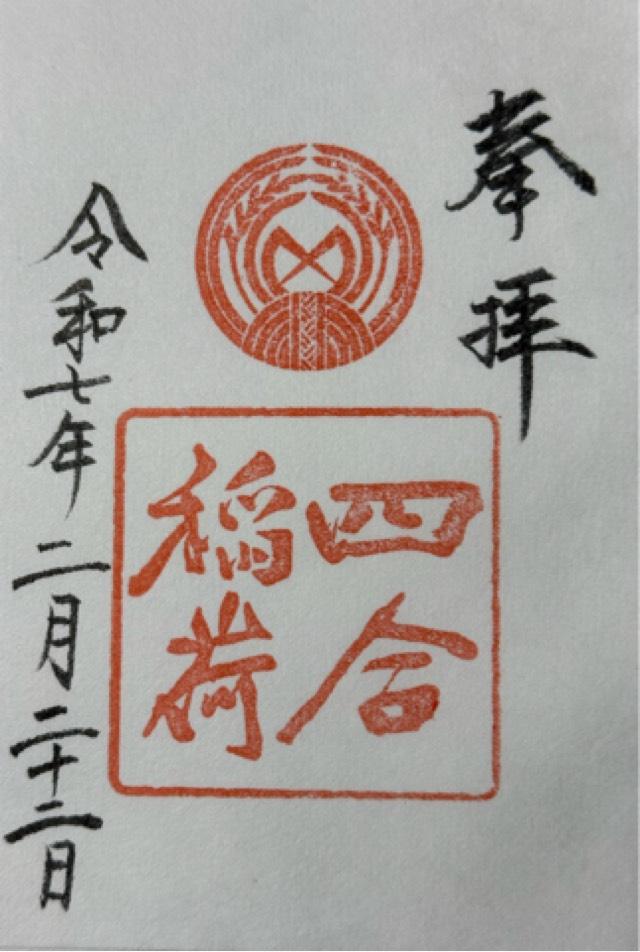 奉拝
四合
稲荷
令和七年二月二十二日